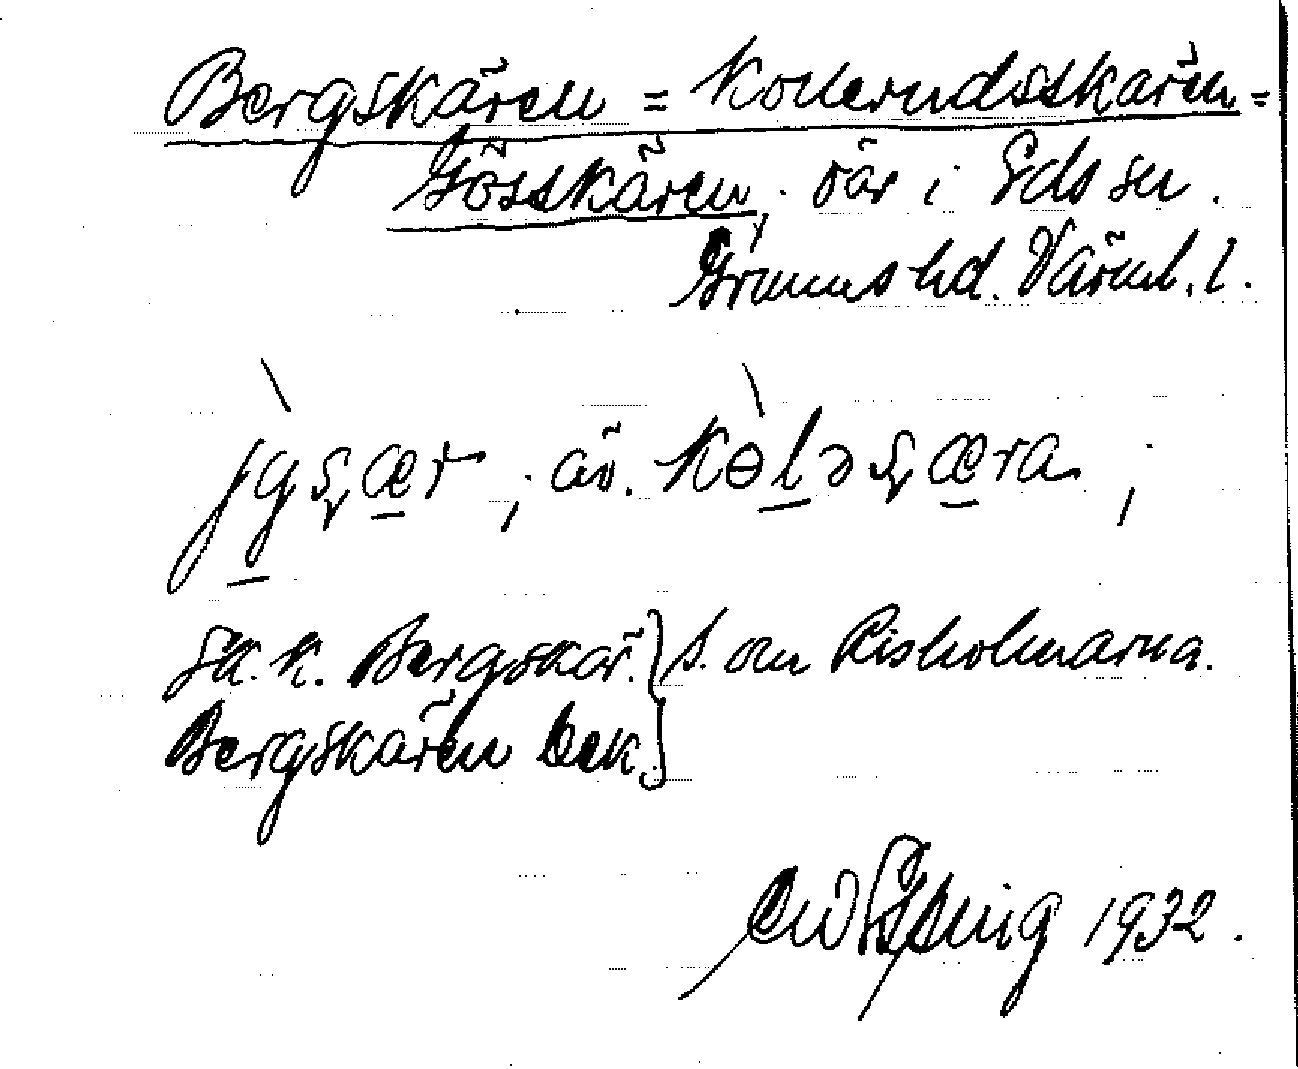 Bergskären = Kollerudsskären =
Gösskären, skär i Eds sn.
Grums hd. Värml. l.
jɵsʂær, äv. kɵləʂæra ;
Ek. k. Bergskär. } S. om Risholmarna.
Bergskären Eek. }
1932.